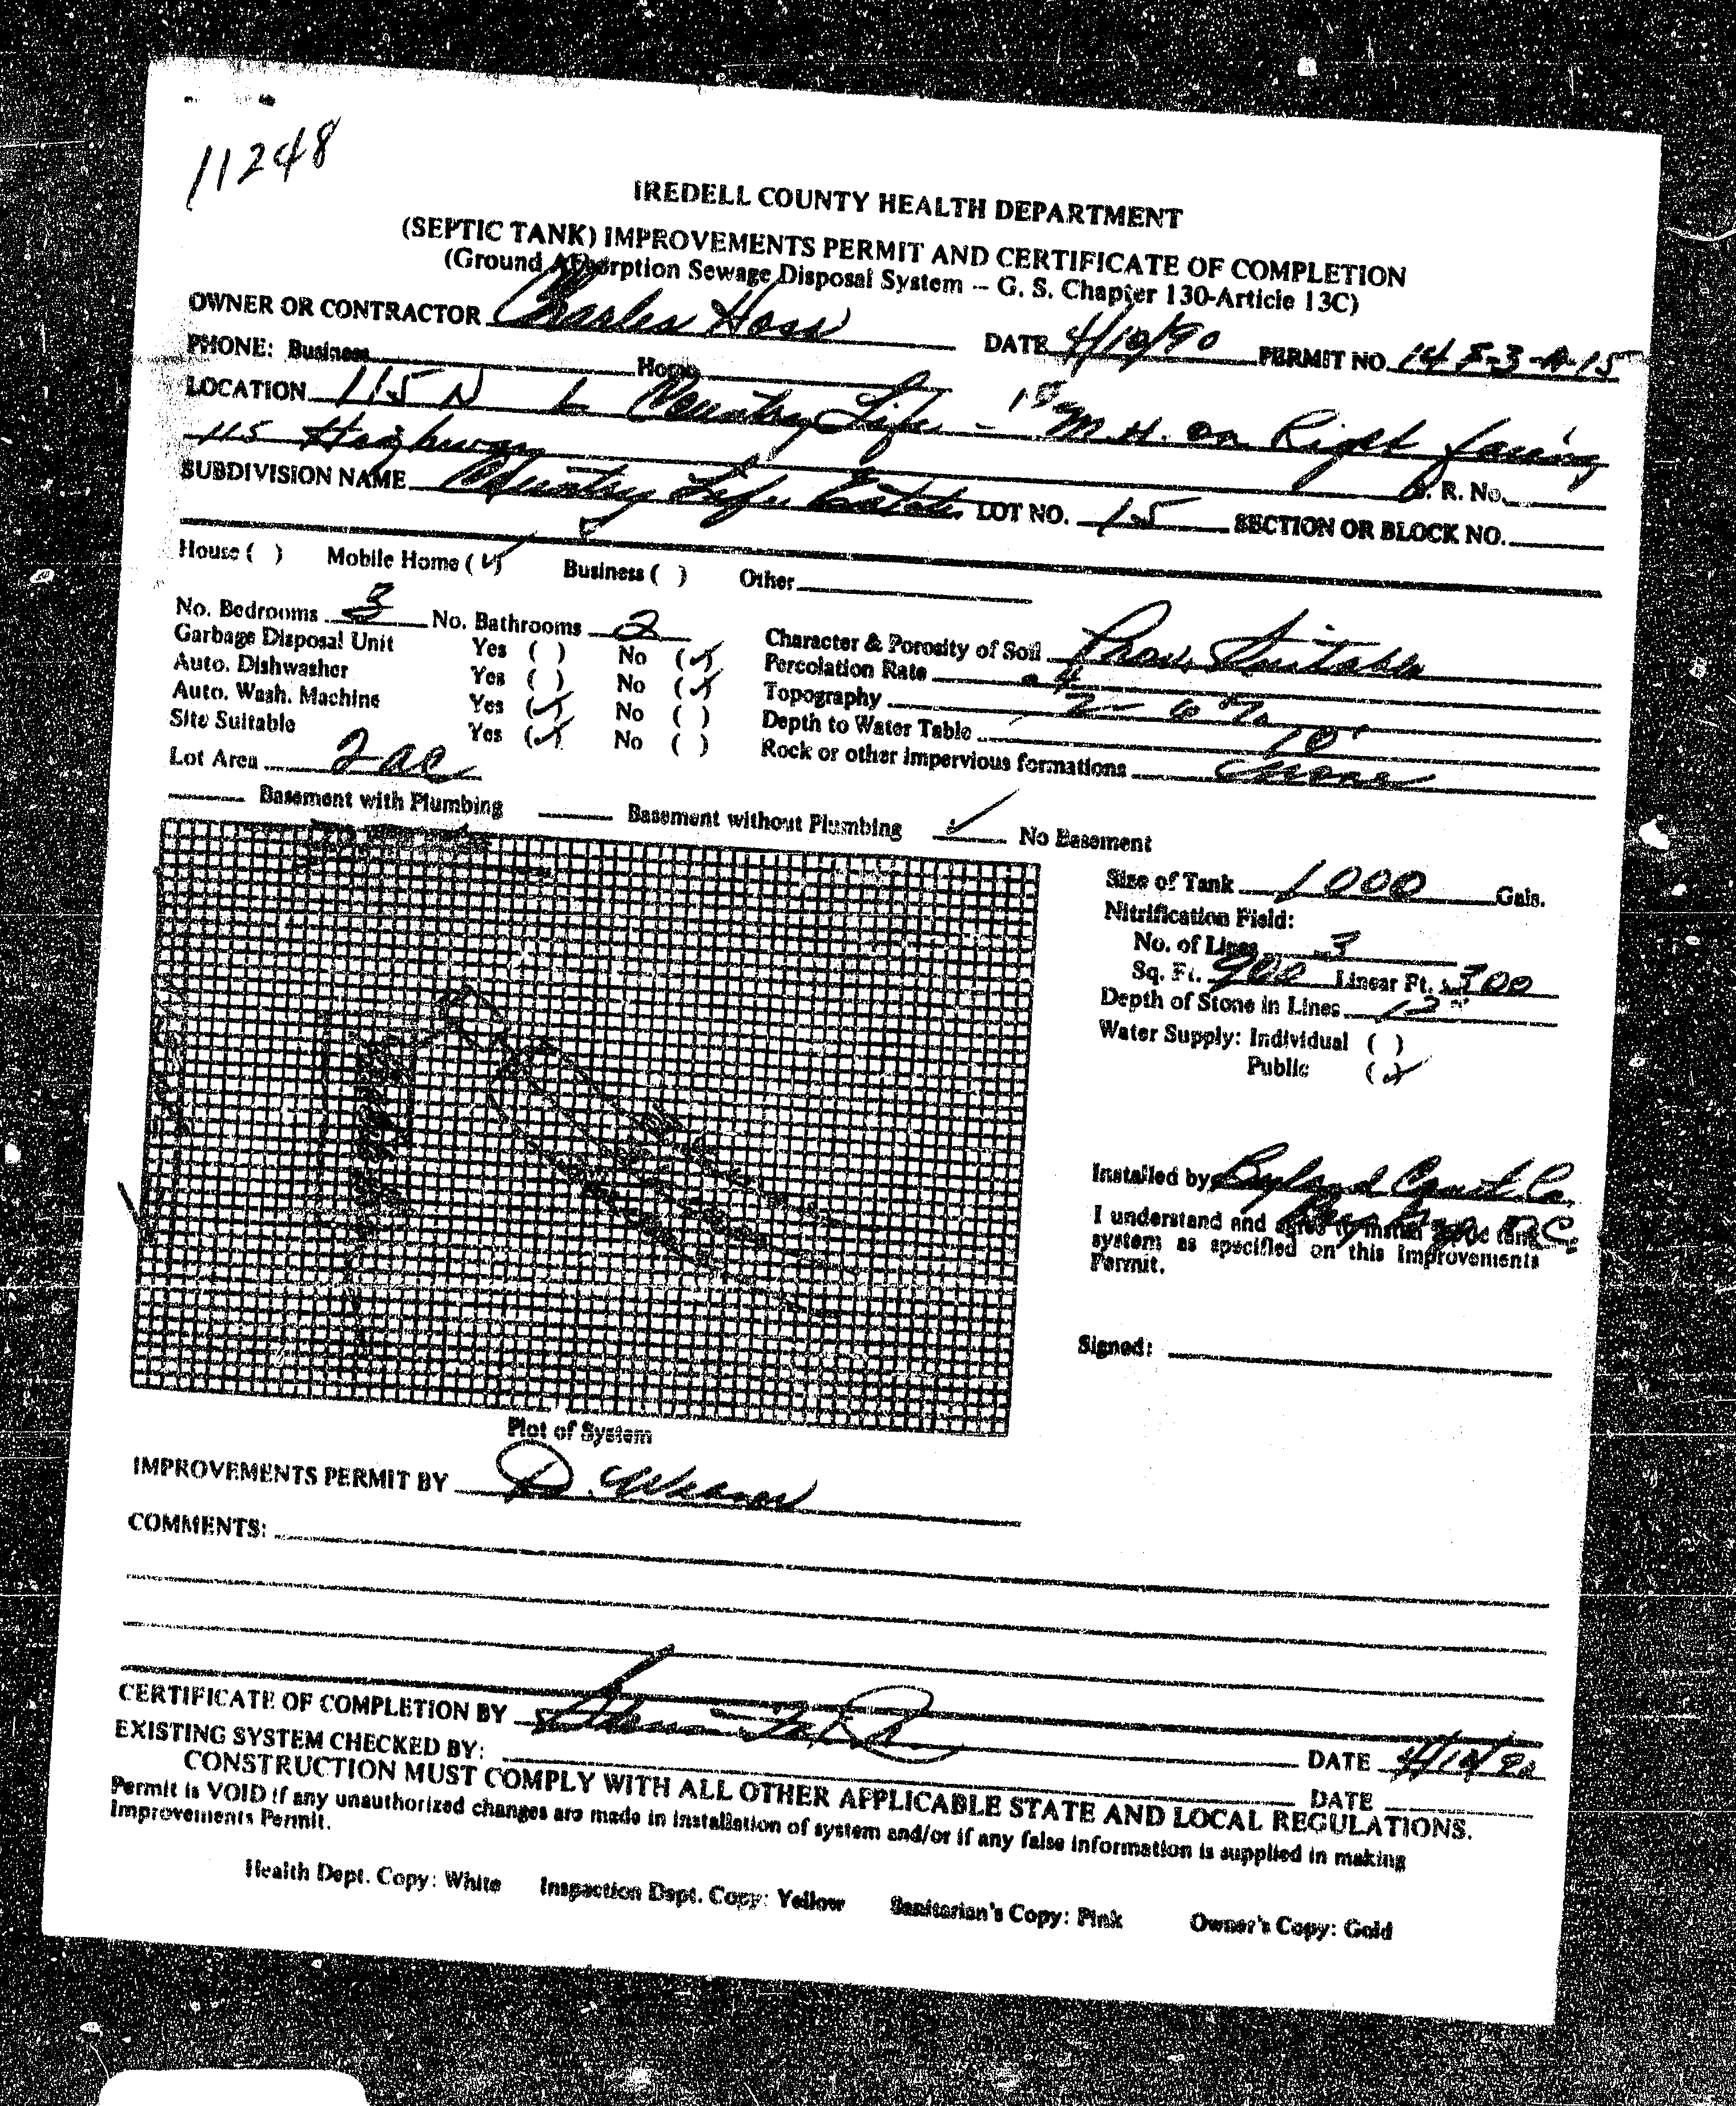 11248
IREDELL COUNTY HEALTH DEPARTMENT
(SEPTIC TANK) IMPROVEMENTS PERMIT AND CERTIFICATE OF COMPLETION
(Ground Absorption Sewage Disposal System -- G. S. Chapter 130-Article 13C)
OWNER OR CONTRACTOR Charles Hoss DATE 4/10/90 PERMIT NO. 14 E-3-A-15
PHONE: Business Home
LOCATION 115 N L Country Life - 1st M.H. on Right facing
115 Highway S. R. No.
SUBDIVISION NAME Country Life Estates LOT NO. 15 SECTION OR BLOCK NO.
House ( ) Mobile Home (✓) Business ( ) Other
No. Bedrooms 3 No. Bathrooms 2 Character & Porosity of Soil Prov. Suitable
Garbage Disposal Unit Yes ( ) No (✓) Percolation Rate .4
Auto. Dishwasher Yes ( ) No (✓) Topography 2-6%
Auto. Wash. Machine Yes (✓) No ( ) Depth to Water Table 10'
Site Suitable Yes (✓) No ( ) Rock or other impervious formations none
Lot Area 2 ac
Basement with Plumbing Basement without Plumbing ✓ No Basement
Size of Tank 1000 Gals.
Nitrification Field:
No. of Lines 3
Sq. Ft. 900 Linear Ft. 300
Depth of Stone in Lines 12"
Water Supply: Individual ( )
Public (✓)
Installed by Co.
I understand and agree to install septic tank
system as specified on this Improvements
Permit.
Signed:
Plot of System
IMPROVEMENTS PERMIT BY D.
COMMENTS:
CERTIFICATE OF COMPLETION BY DATE 4/10/90
EXISTING SYSTEM CHECKED BY: DATE
CONSTRUCTION MUST COMPLY WITH ALL OTHER APPLICABLE STATE AND LOCAL REGULATIONS.
Permit is VOID if any unauthorized changes are made in installation of system and/or if any false information is supplied in making
Improvements Permit.
Health Dept. Copy: White Inspection Dept. Copy: Yellow Sanitarian's Copy: Pink Owner's Copy: Gold